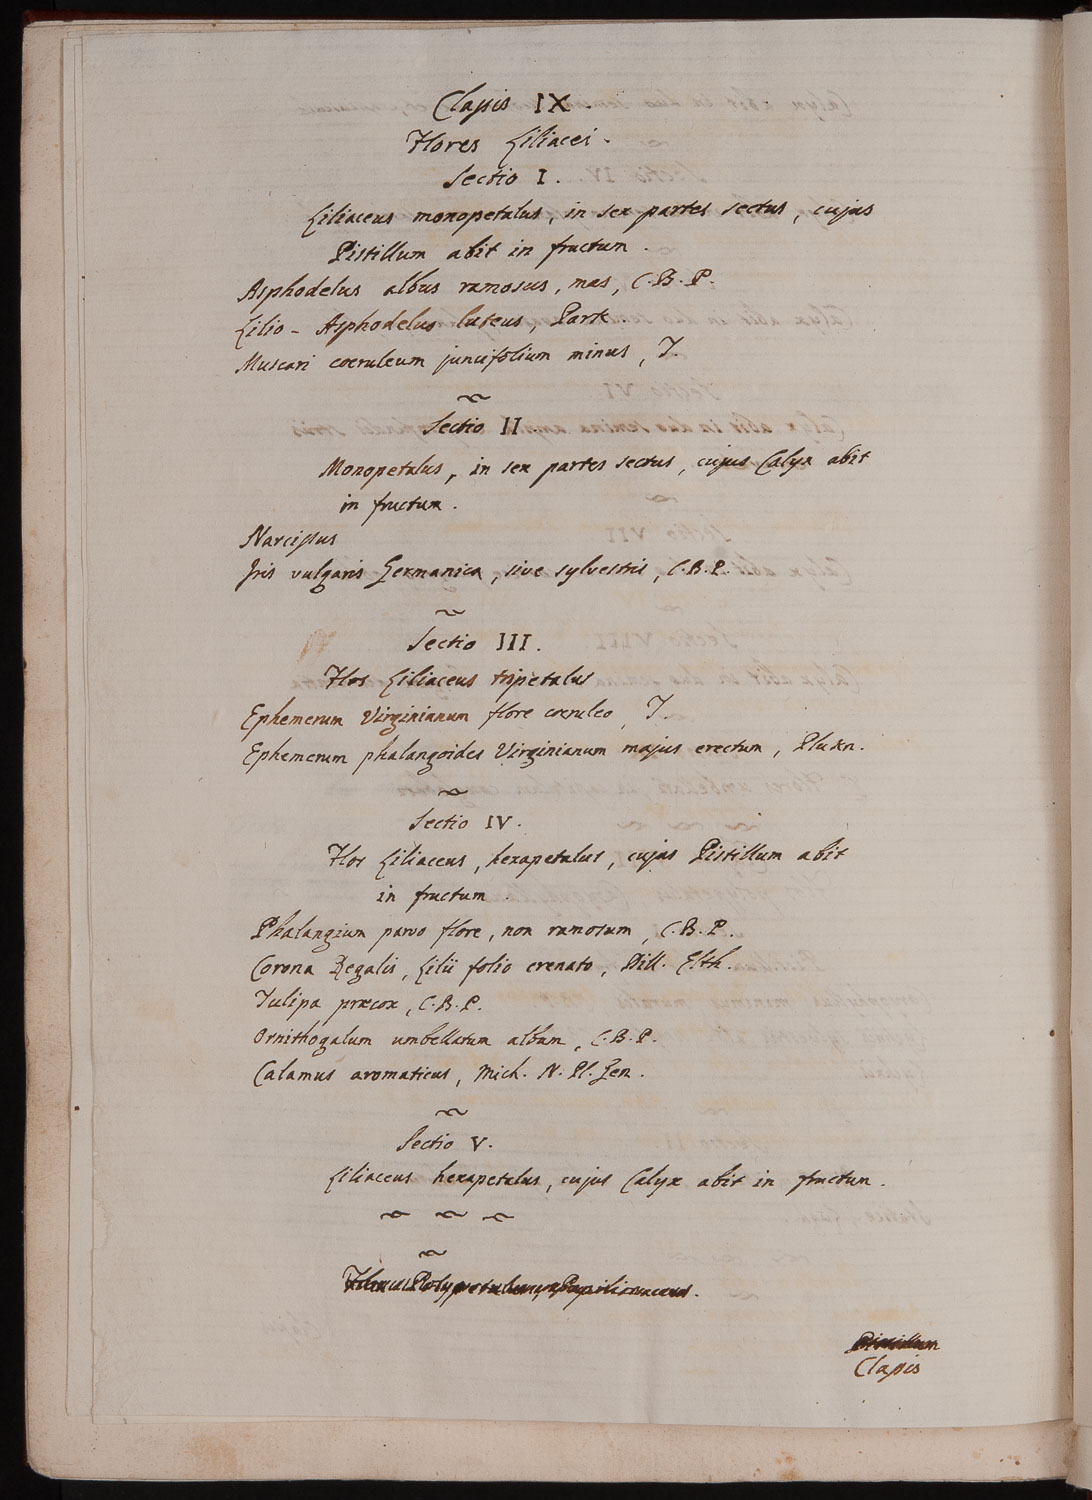 Classis IX.
Flores Liliacei.
Sectio I.
Liliaceus monopetalus, in sex partes sectus, cujus
Pistillum abit in fructum.
Asphodelus albus ramosus, mas, C.B.P.
Lilio-Asphodelus luteus, Park.
Muscari coeruleum juncifolium minus, T.
Sectio II.
Monopetalus, in sex partes sectus, cujus Calyx abit
in fructum.
Narcissus
Iris vulgaris Germanica, sive sylvestris, C.B.P.
Sectio III.
Flos Liliaceus tripetalus
Ephemerum Virginianum flore coeruleo, T.
Ephemerum phalangoides Virginianum majus erectum, Plukn.
Sectio IV.
Flos Liliaceus, hexapetalus, cujus Pistillum abit
in fructum.
Phalangium parvo flore, non ramosum, C.B.P.
Corona Regalis, Lilii folio crenato, Dill. Elth.
Tulipa præcox, C.B.P.
Ornithogalum umbellatum album, C.B.P.
Calamus aromaticus, Mich. N. Pl. Gen.
Sectio V.
Liliaceus hexapetalus, cujus Calyx abit in fructum.
Classis